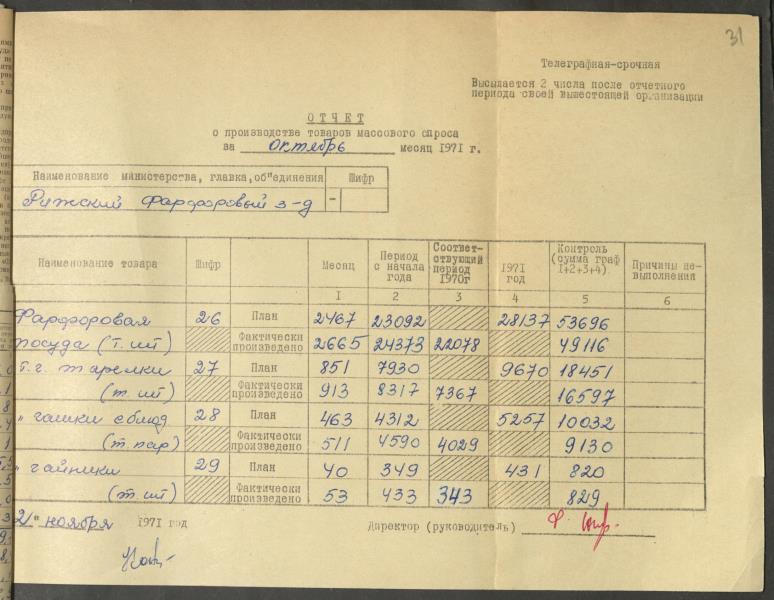 31
Телеграфная-срочная
Высылается 2 числа после отчетного
периода своей вышестоящей организации
ОТЧЕТ
о производстве товаров массового спроса
за октябрь месяц 1971 г.
Наименование министерства, главка, об"единения Шифр
Рижский Фарфоровый з-д -
Наименование товара Шифр Месяц Период с начала года Соответ-ствующий период 1970г 1971 год Контроль (сумма граф 1+2+3+4) Причины не-выполнения
1 2 3 4 5 6
Фарфоровая 26 План 2467 23092 28137 53696
посуда (т. шт) Фактически произведено 2665 24373 22078 49116
т.г. тарелки 27 План 851 7930 9670 18451
(т. шт) Фактически произведено 913 8317 7367 16597
" чашки с блюд 28 План 463 4312 5257 10032
(т. пар) Фактически произведено 511 4590 4029 9130
" чайники 29 План 40 349 431 820
(т. шт) Фактически произведено 53 433 343 829
2/" ноября 1971 год
Директор (руководитель)